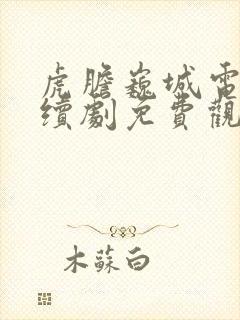 虎膽巍城電
續劇免費觀
木蘇白